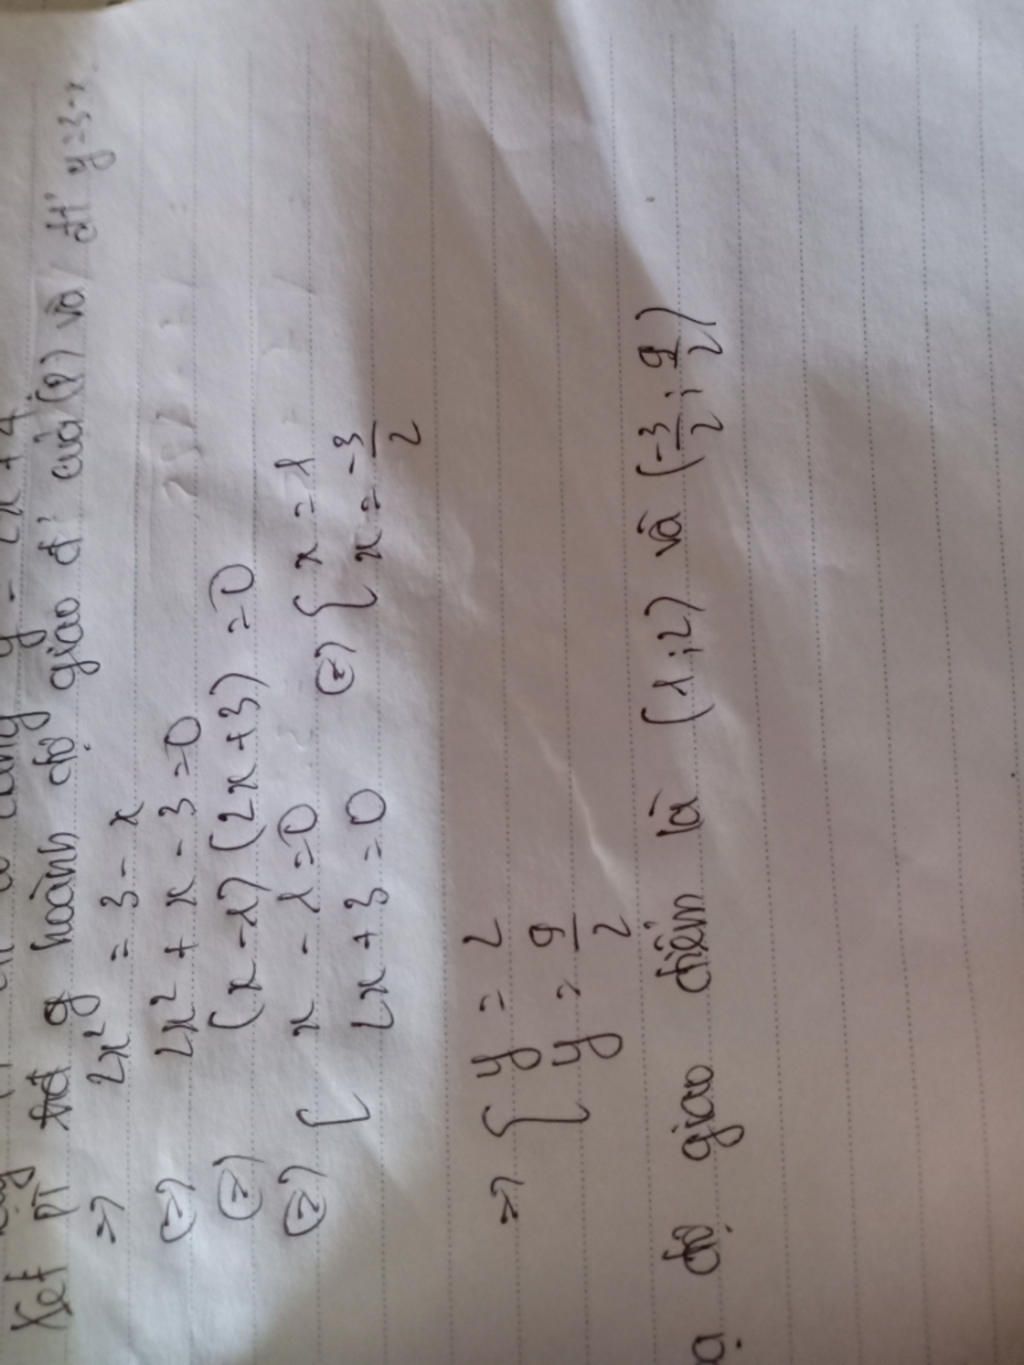 y = 2x + 4.
Xét PT hoành độ giao đ' của (P) và đt' y=3-x
=> 2x² = 3 - x
<=> 2x² + x - 3 = 0
<=> (x-1) (2x+3) = 0
<=> [ x - 1 = 0 <=> [ x = 1
2x + 3 = 0 x = -3/2
=> [ y = 2
y = 9/2
độ giao điểm là (1;2) và (-3/2; 9/2)